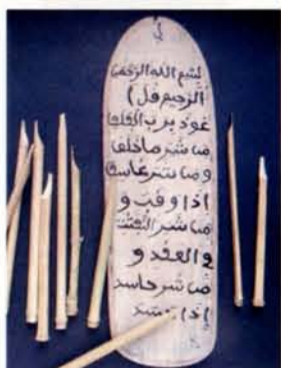 بسم الله الرحمن
الرحيم قل ا
عوذ برب الفلق
من شر ما خلق
ومن شر غاسق
اذا وقب و
من شر النفثت
في العقد و
من شر حاسد
اذا حسد